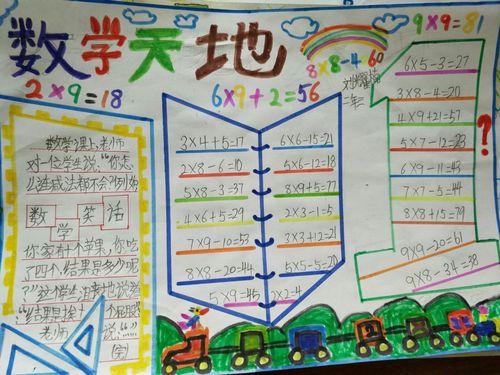 数学天地
2×9=18
6×9+2=56
8×8-4=60
9×9=81
数学课上,老师
对一位学生说:“你怎
么连减法都不会?例如
数学笑话
你家有十个苹果,你吃
了四个,结果是多少呢
?”这个学生沮丧地说道
老师
说:“”
(完)
3×4+5=17
2×8-6=10
5×8-3=37
4×6+5=29
7×9-10=53
8×8-20=44
5×9=45
6×6-15=21
5×6-12=18
8×9+5=77
2×3-1=5
3×3+12=21
5×5-5=20
2×2=4
6×5-3=27
3×8-4=20
4×9+21=57
5×7-12=23
6×9-11=43
7×7-5=44
8×8+15=79
9×9-20=61
9×8-34=38
?